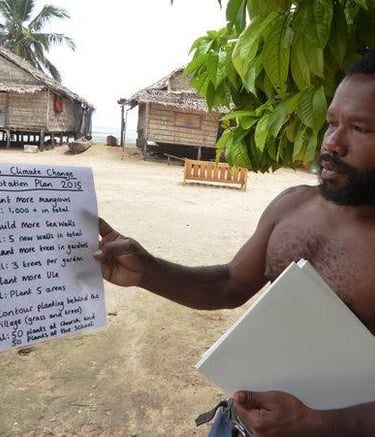 Climate Change
Plan 2015
more mangroves
: 1,000 + in total
more Sea Walls
: 5 new walls in total
more trees in gardens
: 3 trees per garden
more Ule
: Plant 5 areas
Contour planting behind the
village (grass and trees)
: 50 plants at church and
50 plants at the school